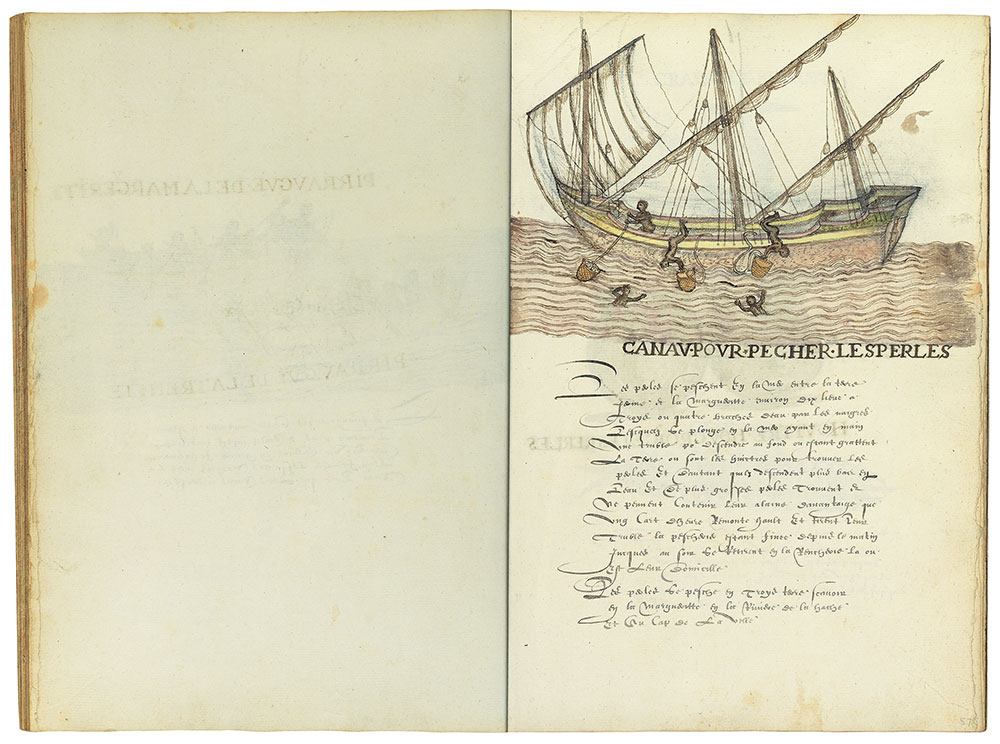 PIRRAVGVE DE LA MARGERITE
CANAV·POVR·PECHER·LES PERLES
Les perles se peschent en la mer entre la terre
ferme et la margueritte environ dix lieux a
Troys ou quatre brasses deau par les naigres
Lesquelz se plonge en la mer ayant en main
une truble por descendre au fond ou estant grattent
La terre ou sont les huistres pour trouver les
perles Et dautant quilz descendent plus bas en
leau Et de plus grosses perles Trouvent Et
Ne peuvent Contenir Leur alaine davantaige que
ung Cart dheure Remonte hault Et tirent leur
Truble la pescherie estant finee depuis le matin
Jucques au soir Se Retirent en la Rencherie La ou
est Leur Domicille
Les perles se pesche en Troys terre scavoir
en la marguerite en la Riviere de la hache
Et Au Cap de La velle
57